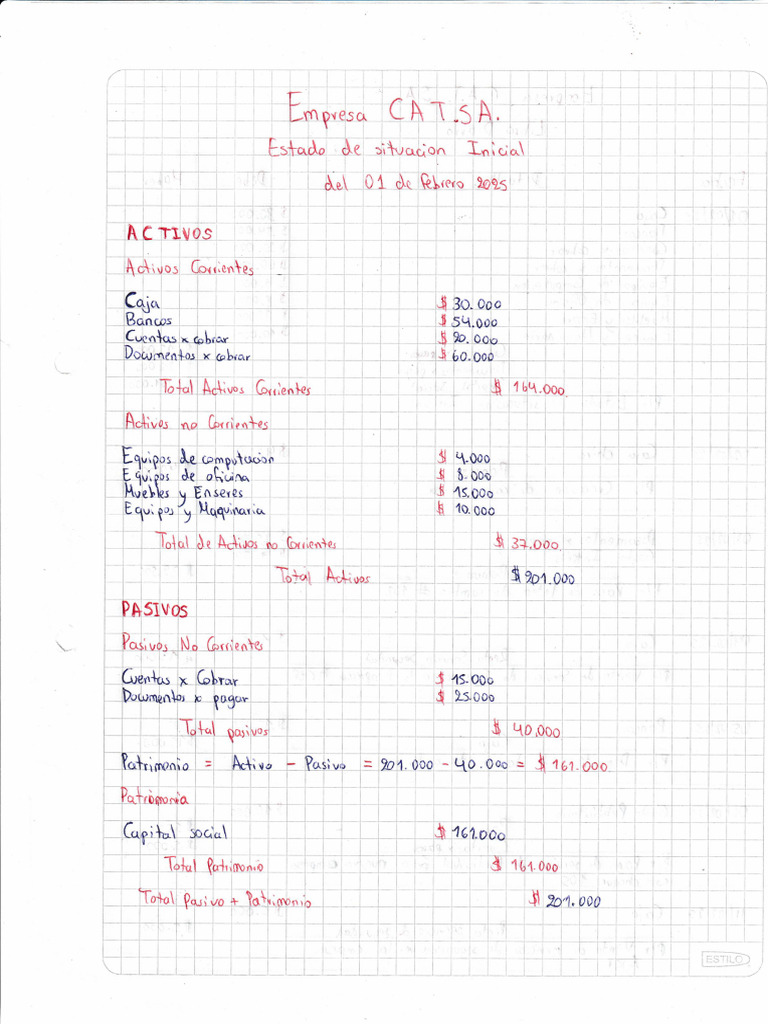 Empresa CAT.SA.
Estado de situacion Inicial
del 01 de febrero 2025
ACTIVOS
Activos Corrientes
Caja $ 30.000
Bancos $ 54.000
Cuentas x cobrar $ 20.000
Documentos x cobrar $ 60.000
Total Activos Corrientes $ 164.000
Activos no Corrientes
Equipos de computacion $ 4.000
Equipos de oficina $ 8.000
Muebles y Enseres $ 15.000
Equipos y Maquinaria $ 10.000
Total de Activos no Corrientes $ 37.000
Total Activos $ 201.000
PASIVOS
Pasivos No Corrientes
Cuentas x Cobrar $ 15.000
Documentos x pagar $ 25.000
Total pasivos $ 40.000
Patrimonio = Activo - Pasivo = 201.000 - 40.000 = $ 161.000
Patrimonia
Capital social $ 161.000
Total Patrimonio $ 161.000
Total Pasivo + Patrimonio $ 201.000
ESTILO